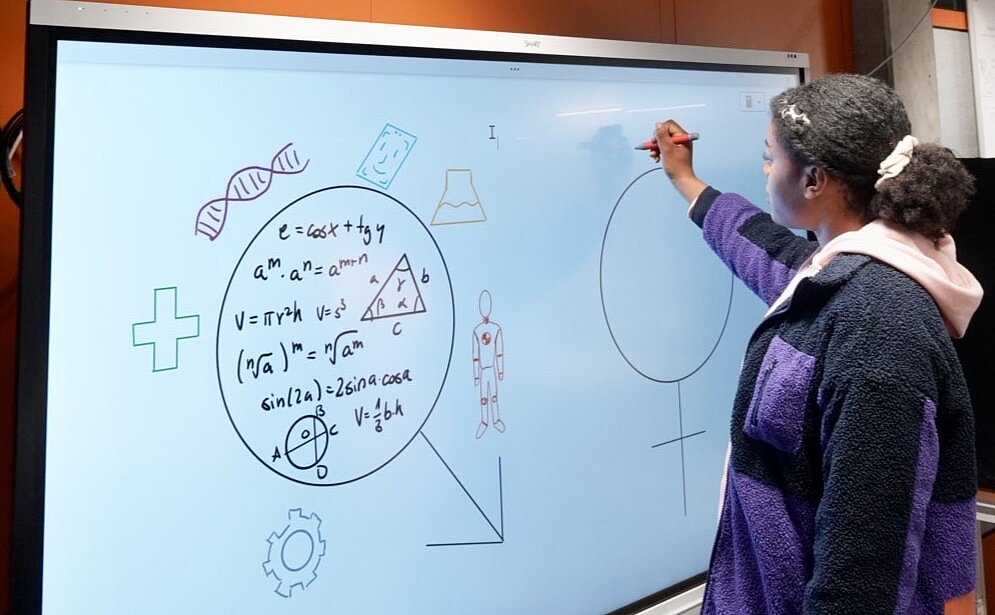 SMART
e = cosx + tgy
aᵐ · aⁿ = aᵐ⁺ⁿ
a b
γ
β α
c
V = πr²h V = s³
(ⁿ√a)ᵐ = ⁿ√aᵐ
sin(2a) = 2sina·cosa
V = 1/3 b·h
B
C
A
D